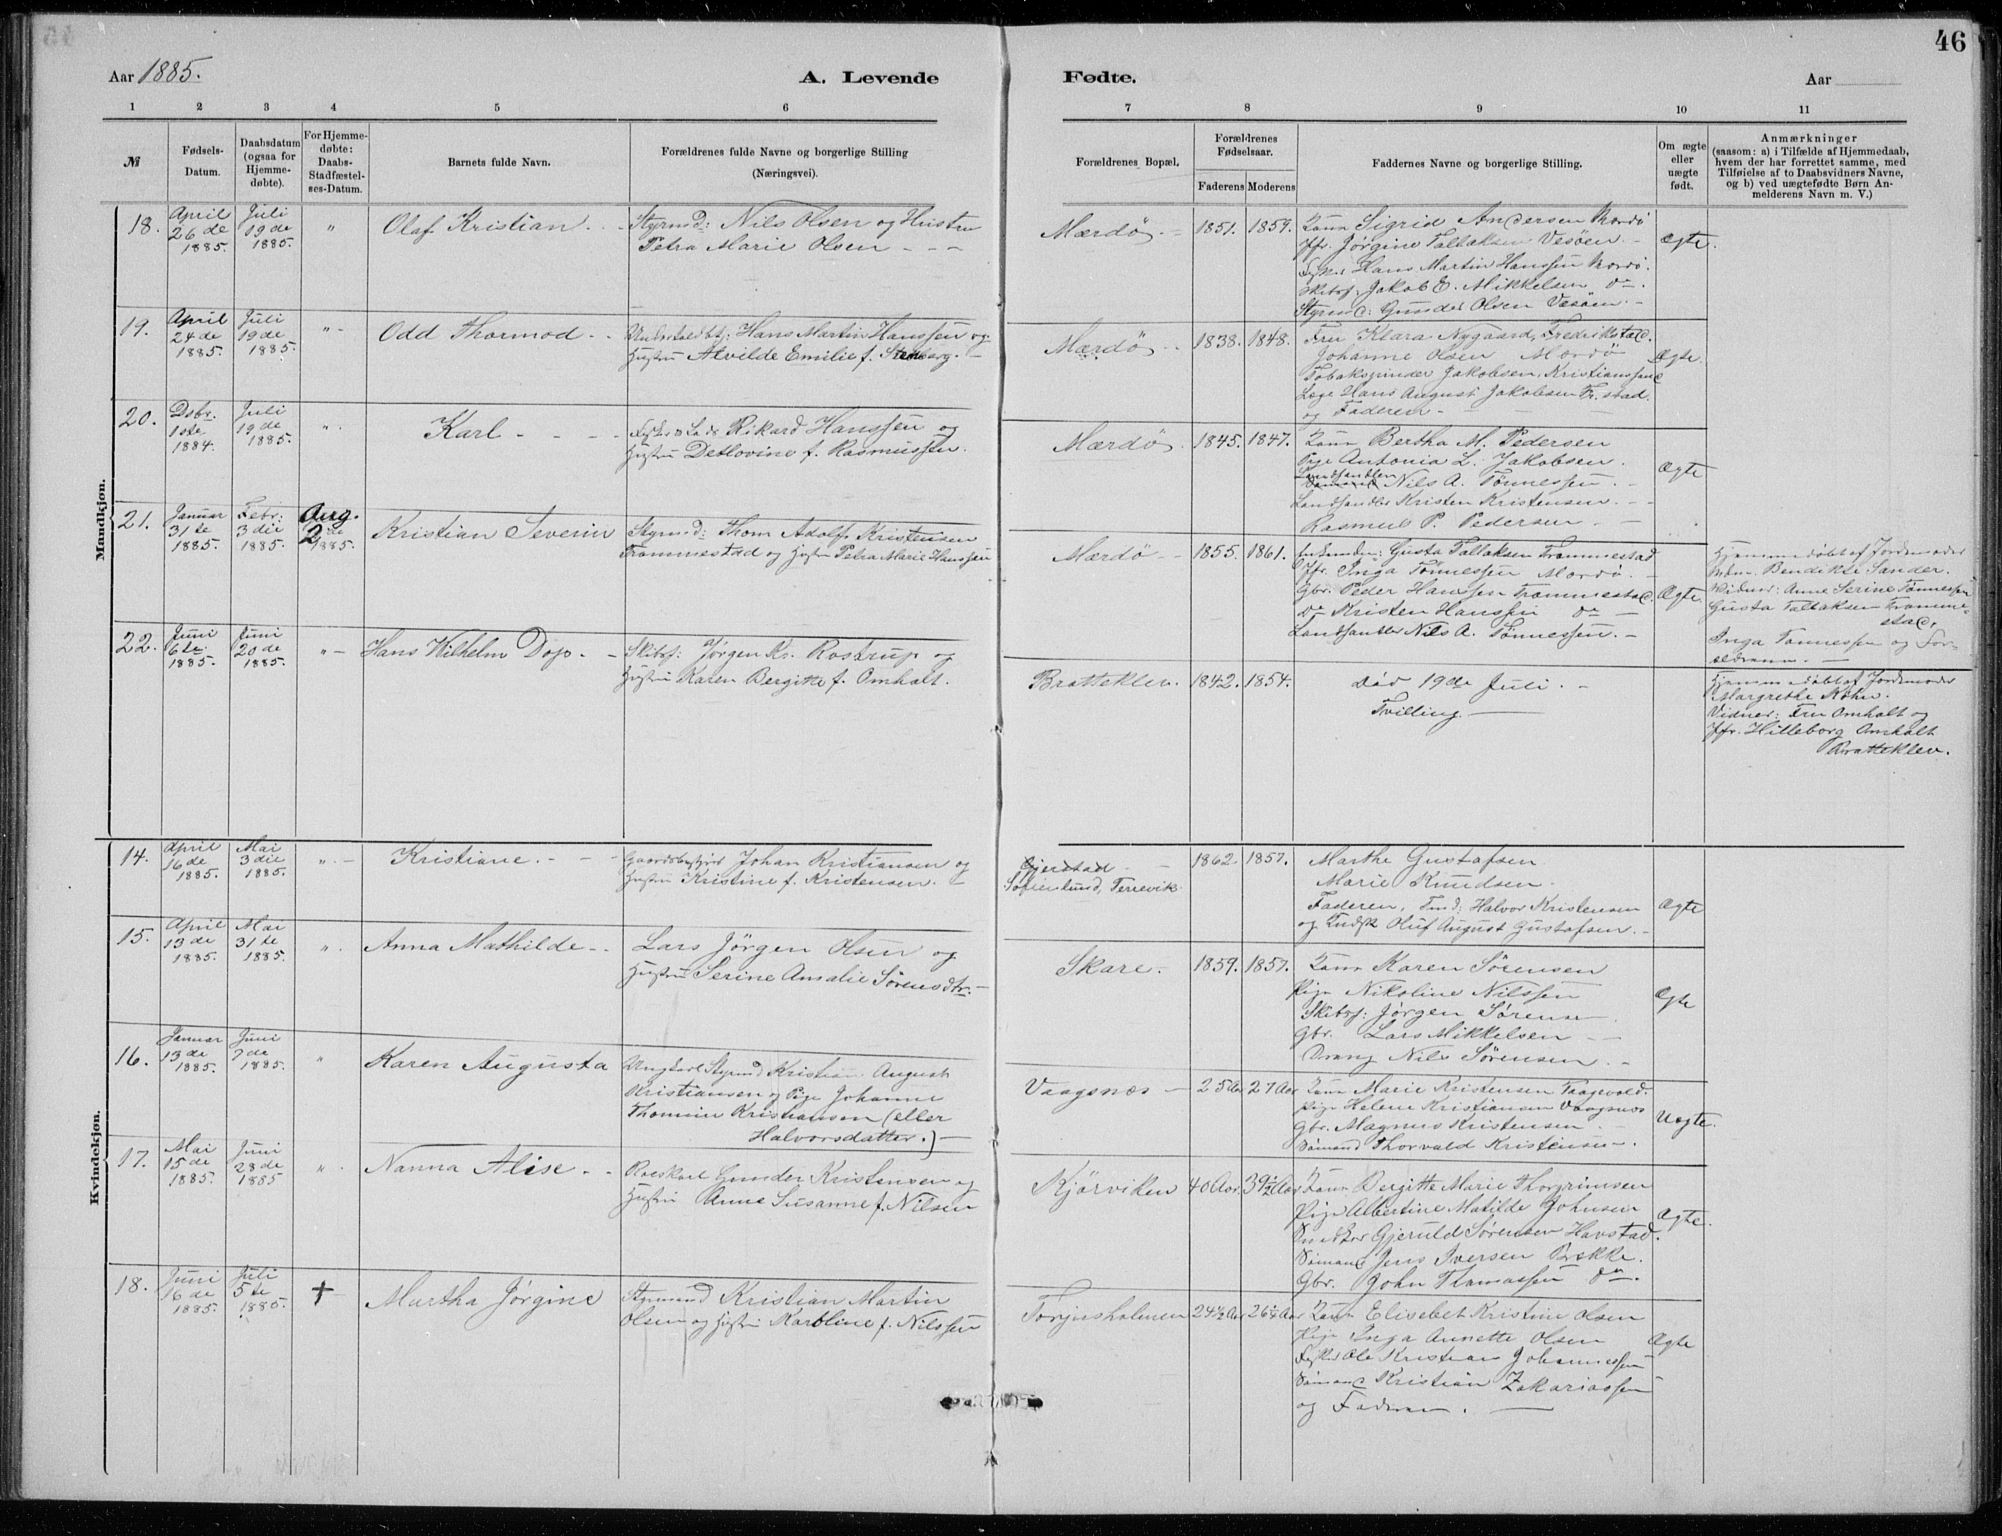 46
Aar 1885.
A. Levende
Fødte.
Aar
1 2 3 4 5 6 7 8 9 10 11
№
Fødsels-
Datum.
Daabsdatum
(ogsaa for
Hjemme-
døbte).
For Hjemme-
døbte:
Daabs-
Stadfæstel-
ses-Datum.
Barnets fulde Navn.
Forældrenes fulde Navne og borgerlige Stilling
(Næringsvei).
Forældrenes Bopæl.
Forældrenes
Fødselsaar.
Faderens Moderens
Faddernes Navne og borgerlige Stilling.
Om ægte
eller
uægte
født.
Anmærkninger
(saasom: a) i Tilfælde af Hjemmedaab,
hvem der har forrettet samme, med
Tilføielse af to Daabsvidners Navne,
og b) ved uægtefødte Børn An-
melderens Navn m. V.)
Mandkjøn.
18.
April
26de
1885.
Juli
19de
1885.
"
Olaf Kristian.
Styrmd: Nils Olsen og Hustru
Petra Marie Olsen
Mærdø
1851. 1859.
Kone Sigrid Andersen Mærdø
Jfr. Jørgine Taltaksen Vesøen
Fisker Hans Martin Hanssen Mærdø.
Skibsf. Jakob E. Mikkelsen do.
Styrmd: Gunder Olsen Vesøen.
Ægte.
19.
April
24de
1885.
Juli
19de
1885.
"
Odd Thormod
Hans Martin Hanssen og
Hustru Alvilde Emilie f. Stenberg.
Mærdø
1838. 1848.
Fru Klara Nygaard, Fredrikstad.
Johanne Olsen Mærdø
Tobakspinder Jakobsen, Kristianssand
Læge Hans August Jakobsen Fr.stad
og Faderen
Ægte.
20.
Dsbr.
1ste
1884.
Juli
19de
1885.
"
Karl
Fisker & Lods Rikard Hanssen og
Hustru Detlovine f. Rasmussen.
Mærdø
1845. 1847.
Kone Bertha M. Pedersen
Pige Antonia L. Jakobsen.
Landhandler
Nils A. Tønnessen.
Landhandler Kristen Kristensen.
Rasmus P. Pedersen
Ægte
21.
Januar
31te
1885.
Febr.
3die
1885.
Aug.
2den
1885.
Kristian Severin
Styrmd: Thom Adolf Kristensen
Trommestad og Hustru Petra Marie Hanssen
Mærdø
1855. 1861.
Enkemdn: Gusta Taltaksen Trommestad
Jfr. Inga Tønnessen Mærdø.
Gbr. Peder Hanssen Trommestad.
do Kristen Hanssen do
Landhandler Nils A. Tønnessen.
Ægte.
Hjemmedøbt af Jordemoder
Mdm. Bendikte Sander.
Vidner: Anne Serine Tønnessen
Gusta Taltaksen Tromme-
stad,
Inga Tønnessen og For-
ældrene.
22.
Juni
6te
1885.
Juni
20de
1885.
"
Hans Wilhelm Dop.
Skibsf: Jørgen Kr. Rostrup og
Hustru Karen Bergitte f. Omholt.
Bratteklev.
1842. 1854.
Død 19de Juli.
Tvilling.
Hjemmedøbt af Jordemoder
Margrethe Køhn.
Vidner: Fru Omholt og
Jfr. Hilleborg Omholt
Bratteklev.
Kvindekjøn.
14.
April
16de
1885.
Mai
3die
1885.
"
Kristiane.
Gaardsbestyrer Johan Kristiansen og
Hustru Kristine f. Kristensen.
Gjerstad
Sofienlund, Terrevik
1862. 1857.
Marthe Gustafsen
Marie Knudsen.
Faderen, Tmd: Halvor Kristensen
og Oluf August Gustafsen.
Ægte
15.
April
13de
1885.
Mai
31te
1885.
"
Anna Mathilde
Lars Jørgen Olsen og
Hustru Serine Amalie Sørensdtr.
Skare.
1859. 1857.
Kone Karen Sørensen
Pige Nikoline Nilssen
Skibsf: Jørgen Sørensen
Gbr. Lars Mikkelsen
Dreng Nils Sørensen.
Ægte
16.
Januar
13de
1885.
Juni
7de
1885.
"
Karen Augusta
Ungkarl Styrmd Kristian August
Kristiansen og Pige Johanne
Thomine Kristiansen (eller
Halvorsdatter.)
Vaagsnæs
25 Aar 27 Aar
Kone Marie Kristensen Faagevold.
Pige Helene Kristiansen Vaagsnæs
Gbr. Magnus Kristensen
Sømand Thorvald Kristensen.
Uægte.
17.
Mai
15de
1885.
Juni
28de
1885
"
Nanna Alise
Roeskarl Gunder Kristensen og
Hustru Anne Susanne f. Nilsen
Kjørviken
40 Aar. 39½ Aar
Kone Bergitte Marie Thorgrimsen
Pige Albertine Matilde Johnsen
Gjeruld Sørensen Havstad.
Sømand Jens Iversen Brække.
Gbr. John Tomassen do.
Ægte.
18.
Juni
16de
1885.
Juli
5te
1885.
+
Martha Jørgine
Styrmand Kristian Martin
Olsen og Hustru Karoline f. Nilssen
Torjusholmen
24½ Aar 26¼ Aar
Kone Elisebet Kristine Olsen
Pige Inga Annette Olsen
Fisker Ole Kristian Johannessen
Sømand Kristian Zakariassen
og Faderen.
Ægte